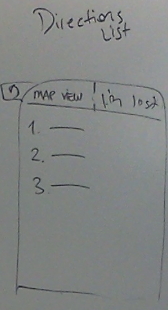 Directions
List
MAP VIEW I'm lost
1.
2.
3